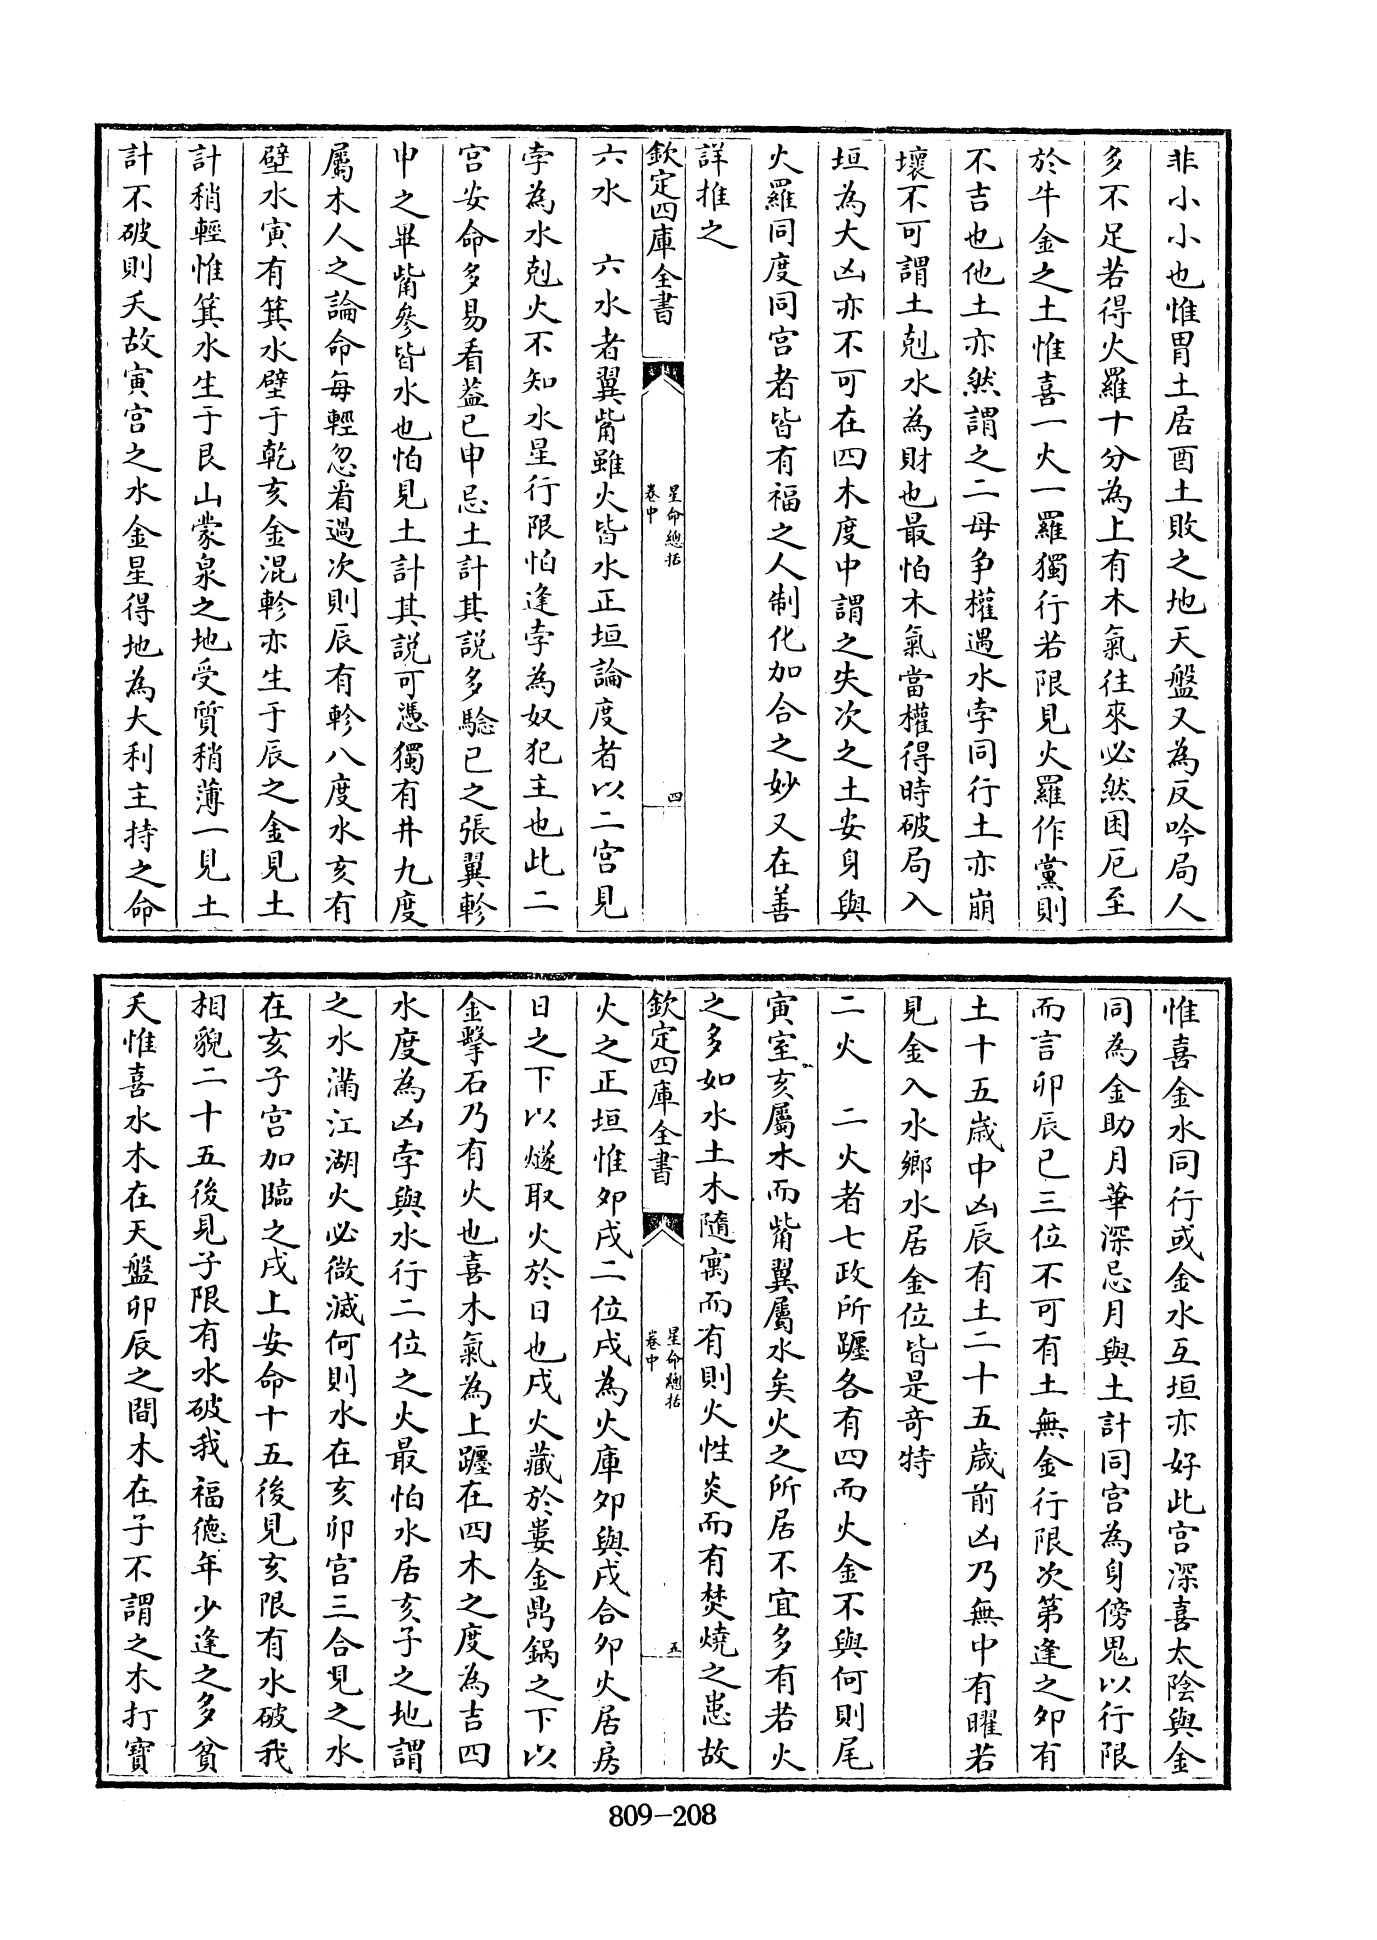 非小小也惟胃土居酉土敗之地天盤又為反吟局人
多不足若得火羅十分為上有木氣往來必然困厄至
於牛金之土惟喜一火一羅獨行若限見火羅作黨則
不吉也他土亦然謂之二母争權遇水孛同行土亦崩
壞不可謂土剋水為財也最怕木氣當權得時破局入
垣為大凶亦不可在四木度中謂之失次之土安身與
火羅同度同宫者皆有福之人制化加合之妙又在善
詳推之
欽定四庫全書
星命總括
卷中
四
六水　六水者翼觜雖火皆水正垣論度者以二宫見
孛為水剋火不知水星行限怕逢孛為奴犯主也此二
宫安命多易看葢巳申忌土計其説多驗巳之張翼軫
申之畢觜參皆水也怕見土計其説可憑獨有井九度
屬木人之論命毎輕忽看過次則辰有軫八度水亥有
壁水寅有箕水壁于乾亥金混軫亦生于辰之金見土
計稍輕惟箕水生于艮山蒙泉之地受質稍薄一見土
計不破則夭故寅宫之水金星得地為大利主持之命
惟喜金水同行或金水互垣亦好此宫深喜太陰與金
同為金助月華深忌月與土計同宫為身傍鬼以行限
而言卯辰巳三位不可有土無金行限次第逢之卯有
土十五歳中凶辰有土二十五歳前凶乃無中有曜若
見金入水鄉水居金位皆是竒特
二火　二火者七政所躔各有四而火金不與何則尾
寅室亥屬木而觜翼屬水矣火之所居不宜多有若火
之多如水土木隨寓而有則火性炎而有焚燒之患故
欽定四庫全書
星命總括
卷中
五
火之正垣惟卯戌二位戌為火庫卯與戌合卯火居房
日之下以燧取火於日也戌火藏於婁金鼎鍋之下以
金擊石乃有火也喜木氣為上躔在四木之度為吉四
水度為凶孛與水行二位之火最怕水居亥子之地謂
之水滿江湖火必微滅何則水在亥卯宫三合見之水
在亥子宫加臨之戌上安命十五後見亥限有水破我
相貌二十五後見子限有水破我福德年少逢之多貧
夭惟喜水木在天盤卯辰之間木在子不謂之木打寶
809-208